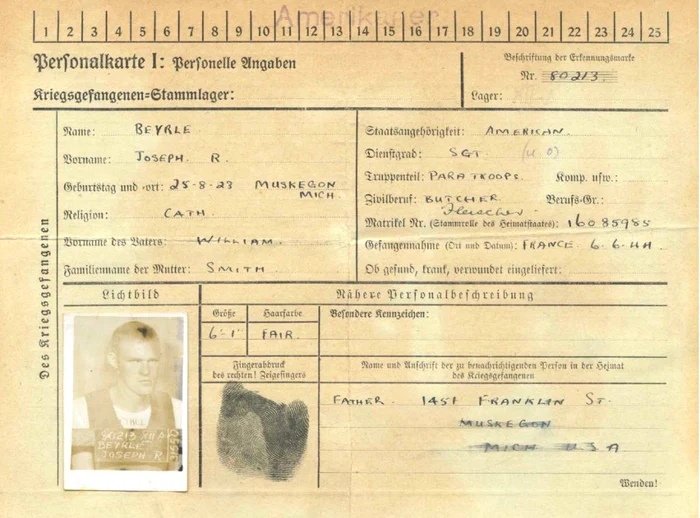 Amerikaner
1 2 3 4 5 6 7 8 9 10 11 12 13 14 15 16 17 18 19 20 21 22 23 24 25
Personalkarte I: Personelle Angaben
Kriegsgefangenen=Stammlager:
Beschriftung der Erkennungsmarke
Nr. 80213.
Lager:
Des Kriegsgefangenen
Name: BEYRLE
Vorname: JOSEPH. R.
Geburtstag und =ort: 25-8-23 MUSKEGON
MICH.
Religion: CATH.
Vorname des Vaters: WILLIAM.
Familienname der Mutter: SMITH.
Staatsangehörigkeit: AMERICAN.
Dienstgrad: SGT. (U O)
Truppenteil: PARATROOPS. Komp. usw.:
Zivilberuf: BUTCHER Berufs-Gr.:
Fleischer
Matrikel Nr. (Stammrolle des Heimatstaates): 16085985
Gefangennahme (Ort und Datum): FRANCE 6-6-44
Ob gesund, krank, verwundet eingeliefert:
Lichtbild
Nähere Personalbeschreibung
Größe
Haarfarbe
6'-1"
FAIR.
Besondere Kennzeichen:
Fingerabdruck
des rechten! Zeigefingers
Name und Anschrift der zu benachrichtigenden Person in der Heimat
des Kriegsgefangenen
FATHER. 1451 FRANKLIN ST.
MUSKEGON
MICH U.S.A
80213 XII A
BEYRLE
JOSEPH. R
Wenden!